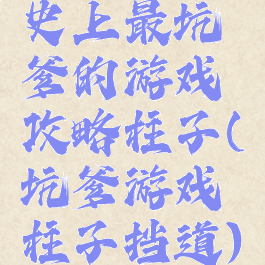 史上最坑
爹的游戏
攻略柱子(
坑爹游戏
柱子挡道)